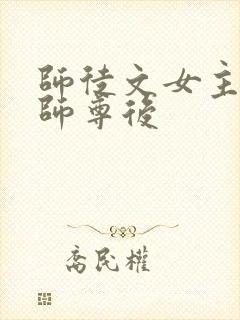 師徒文女主
師尊後
喬民權